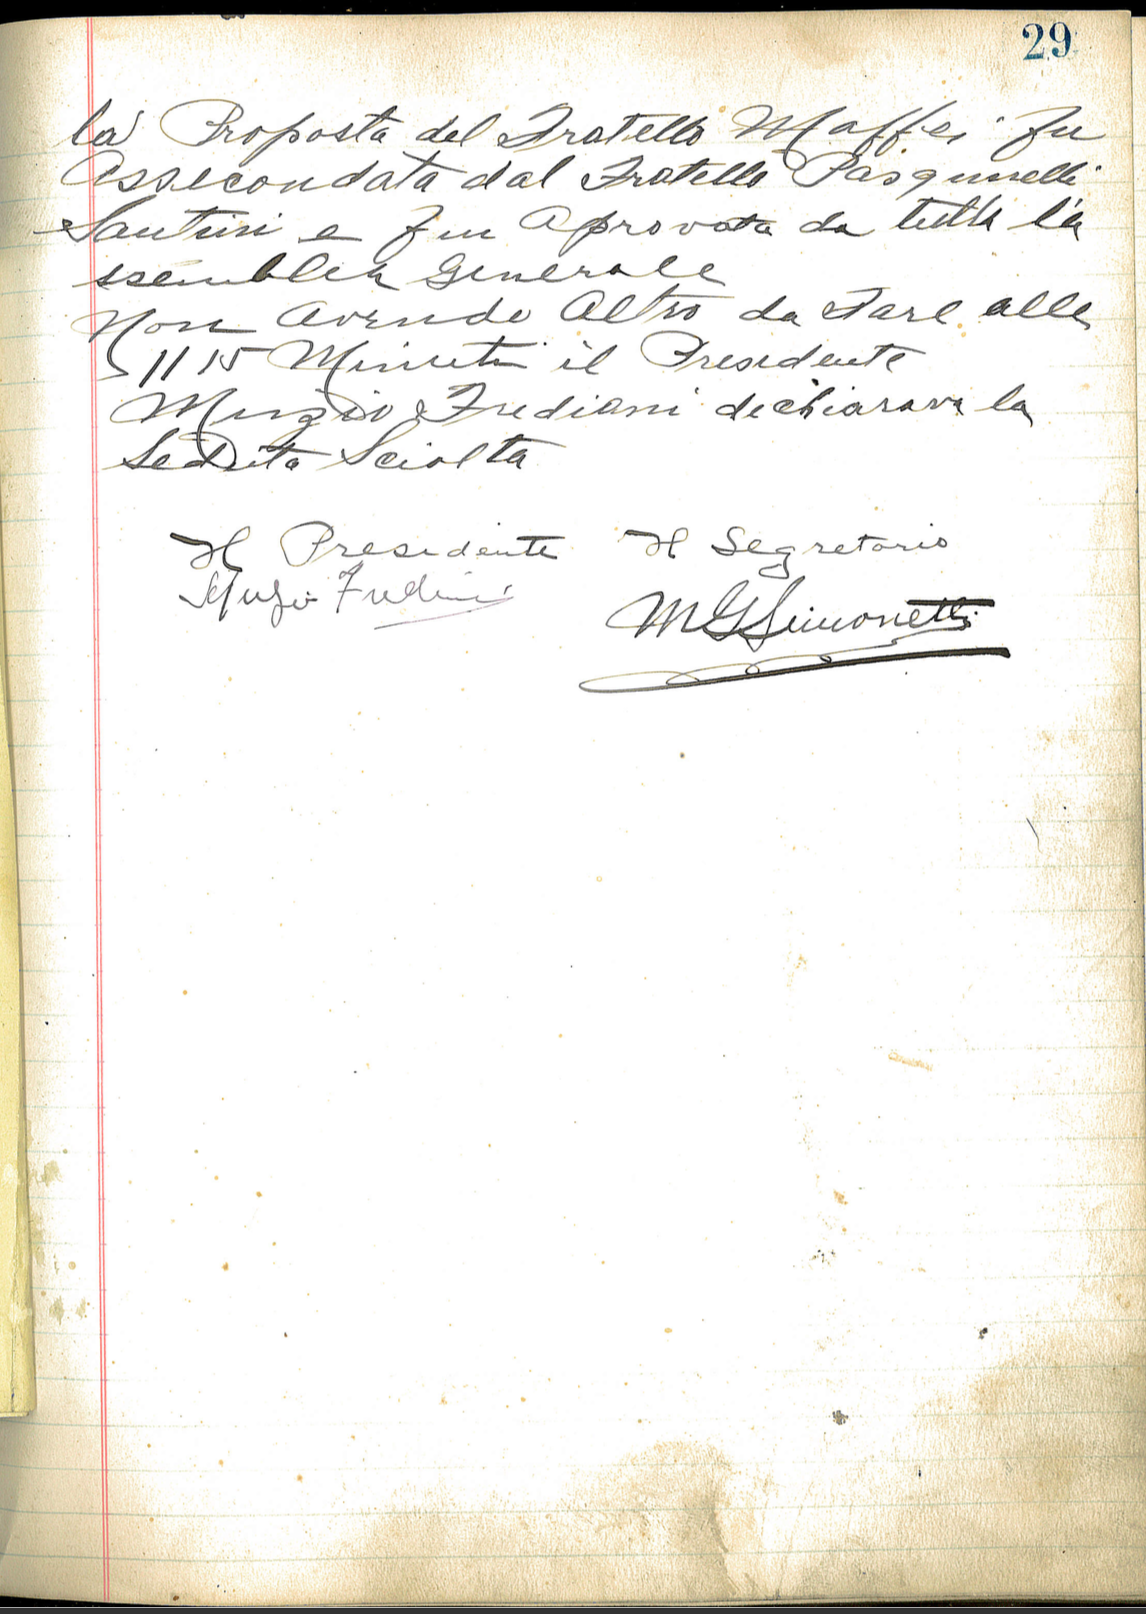 29
la Proposta del Fratello Maffei fu
Assecondata dal Fratello Pasquinelli
Santini e fu Aprovata da tutta la
ssemblea Generale
Non Avendo Altro da Fare alle
11 15 Minuti il Presidente
Muzio Frediani dichiarava la
Seduta Sciolta
Il Presidente Il Segretario
Muzio Frediani
MGSimonetti